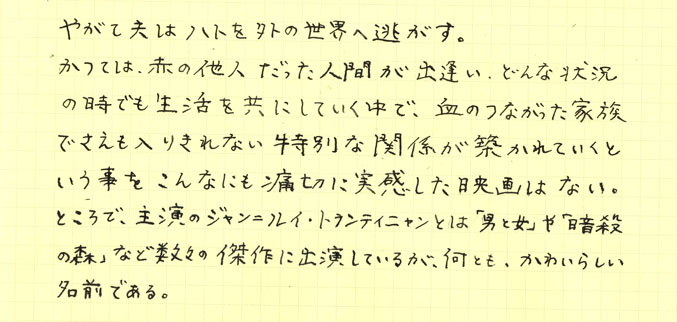 やがて夫はハトを外の世界へ逃がす。
かつては、赤の他人だった人間が出逢い、どんな状況
の時でも生活を共にしていく中で、血のつながった家族
でさえも入りきれない特別な関係が築かれていくと
いう事をこんなにも痛切に実感した映画はない。
ところで、主演のジャン＝ルイ・トランティニャンとは「男と女」や「暗殺
の森」など数々の傑作に出演しているが、何とも、かわいらしい
名前である。